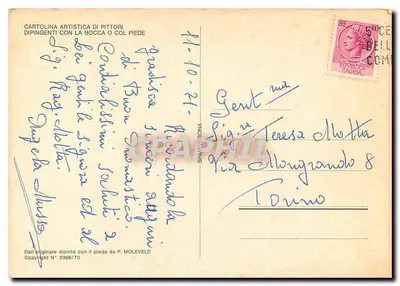 CARTOLINA ARTISTICA DI PITTORI
DIPINGENTI CON LA BOCCA O COL PIEDE
11-10-71-
Ricordandola
gradisca sinceri auguri
di Buon Onomastico.
Cordialissimi saluti a
Lei gentile signora ed al
Sig. Rag. Motta
Angela Musso
Dall'originale dipinto con il piede da P. MOLEVELD
Copyright N° 3366/70
Gent ma
Sig.ra Teresa Motta
Via Mongrando 8
Torino